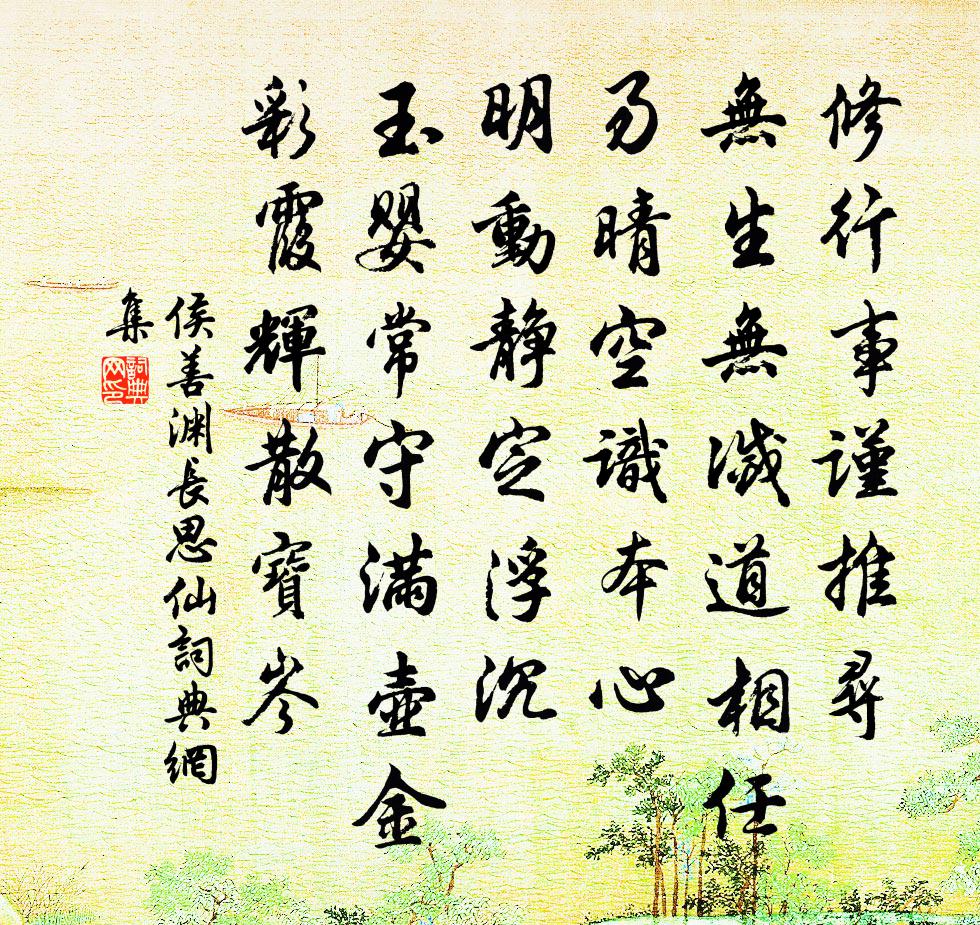 修行事謹推尋
無生無滅道相任
晴空識本心
明動靜定浮沉
玉嬰常守滿壺金
彩霞輝散寶岑
侯善渊長思仙詞典網
集
詞典
网印